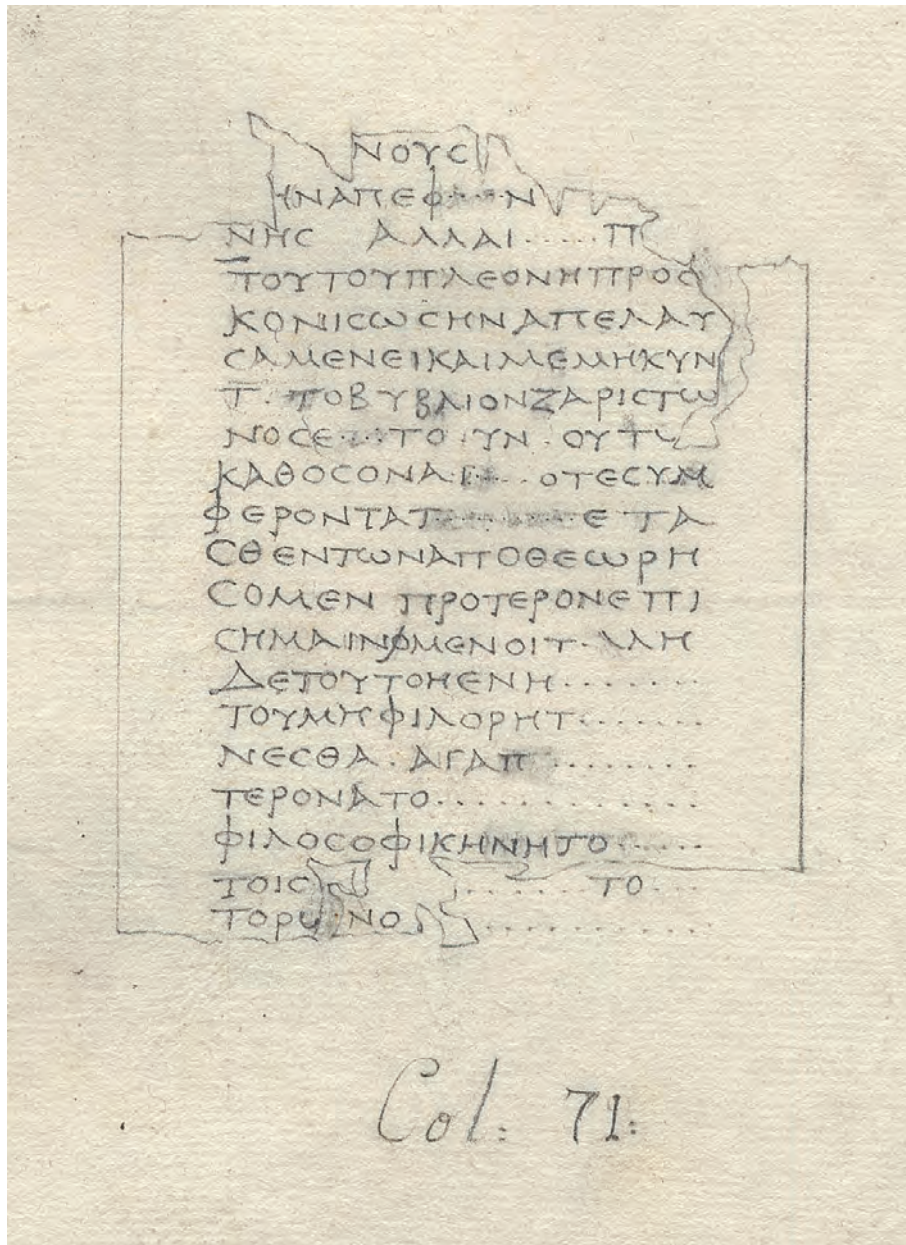 ΝΟΥϹ
ΗΝΑΠΕΦ....Ν
ΝΗϹ ΑΛΛΑΙ.....Π
ΤΟΥΤΟΥΠΛΕΟΝΗΠΡΟϹ
ΚΟΝΙϹΩϹΗΝΑΠΕΛΑΥ
ϹΑΜΕΝΕΙΚΑΙΜΕΜΗΚΥΝ
Τ.ΤΟΒΥΒΛΙΟΝΖΑΡΙϹΤΩ
ΝΟϹΕ....ΤΟ.ΥΝ.ΟΥΤΩ
ΚΑΘΟϹΟΝΑ.Γ....ΟΤΕϹΥΜ
ΦΕΡΟΝΤΑΤ.........Ε ΤΑ
ϹΘΕΝΤΩΝΑΠΟΘΕΩΡΗ
ϹΟΜΕΝ ΠΡΟΤΕΡΟΝΕΠΙ
ϹΗΜΑΙΝΟΜΕΝΟΙΤ.ΛΛΗ
ΔΕΤΟΥΤΟΗΕΝΗ.......
ΤΟΥΜΗΦΙΛΟΡΗΤ.......
ΝΕϹΘΑ.ΑΓΑΠ........
ΤΕΡΟΝΑΤΟ.............
ΦΙΛΟϹΟΦΙΚΗΝΗΤΟ.....
ΤΟΙϹ ........ΤΟ...
ΤΟΡΩ.ΝΟ ...........
Col: 71: